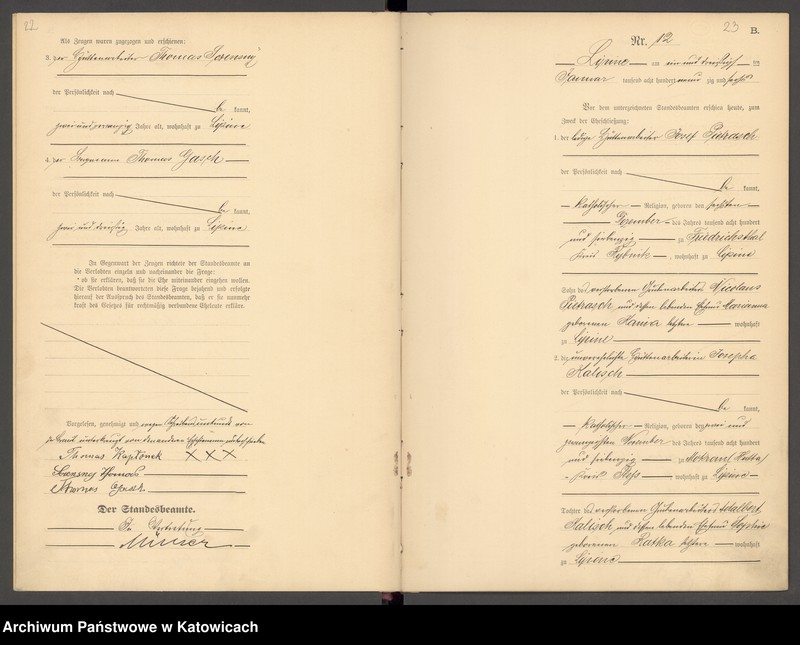 22
Als Zeugen waren zugezogen und erschienen:
3. der Hüttenarbeiter Thomas
der Persönlichkeit nach
be kannt,
zwei und zwanzig Jahre alt, wohnhaft zu Lipine
4. der Thomas Gasch
der Persönlichkeit nach
be kannt,
zwei und dreißig Jahre alt, wohnhaft zu Lipine
In Gegenwart der Zeugen richtete der Standesbeamte an
die Verlobten einzeln und nacheinander die Frage:
ob sie erklären, daß sie die Ehe miteinander eingehen wollen.
Die Verlobten beantworteten diese Frage bejahend und erfolgte
hierauf der Ausspruch des Standesbeamten, daß er sie nunmehr
kraft des Gesetzes für rechtmäßig verbundene Eheleute erkläre.
Vorgelesen, genehmigt und wegen Schreibensunkunde von
der Braut unterkreuzt, von den anderen Erschienenen unterschrieben
Thomas XXX
Thomas
Thomas Gasch
Der Standesbeamte.
In Vertretung
23
B.
Nr. 12
Lipine am ein und dreißigsten
Januar tausend acht hundert neun zig und sechs
Vor dem unterzeichneten Standesbeamten erschien heute, zum
Zweck der Eheschließung:
1. der ledige Hüttenarbeiter Josef Pietrasch
der Persönlichkeit nach
be kannt,
katholischer Religion, geboren den sechsten
Dezember des Jahres tausend acht hundert
und siebenzig zu Friedrichsthal
Kreis Rybnik, wohnhaft zu Lipine
Sohn des verstorbenen Hüttenarbeiters Nicolaus
Pietrasch und dessen lebenden Ehefrau Marianna
geborenen Haniva letztere wohnhaft
zu Lipine
2. die unverehelichte Hüttenarbeiterin Josepha
Kalisch
der Persönlichkeit nach
be kannt,
katholischer Religion, geboren den zwei und
zwanzigsten November des Jahres tausend acht hundert
und siebenzig zu Mokrau Hutta
Kreis Pleß wohnhaft zu Lipine
Tochter des verstorbenen Hüttenarbeiters Adalbert
Kalisch und dessen lebenden Ehefrau Sophie
geborenen Ratka letztere wohnhaft
zu Lipine
Archiwum Państwowe w Katowicach